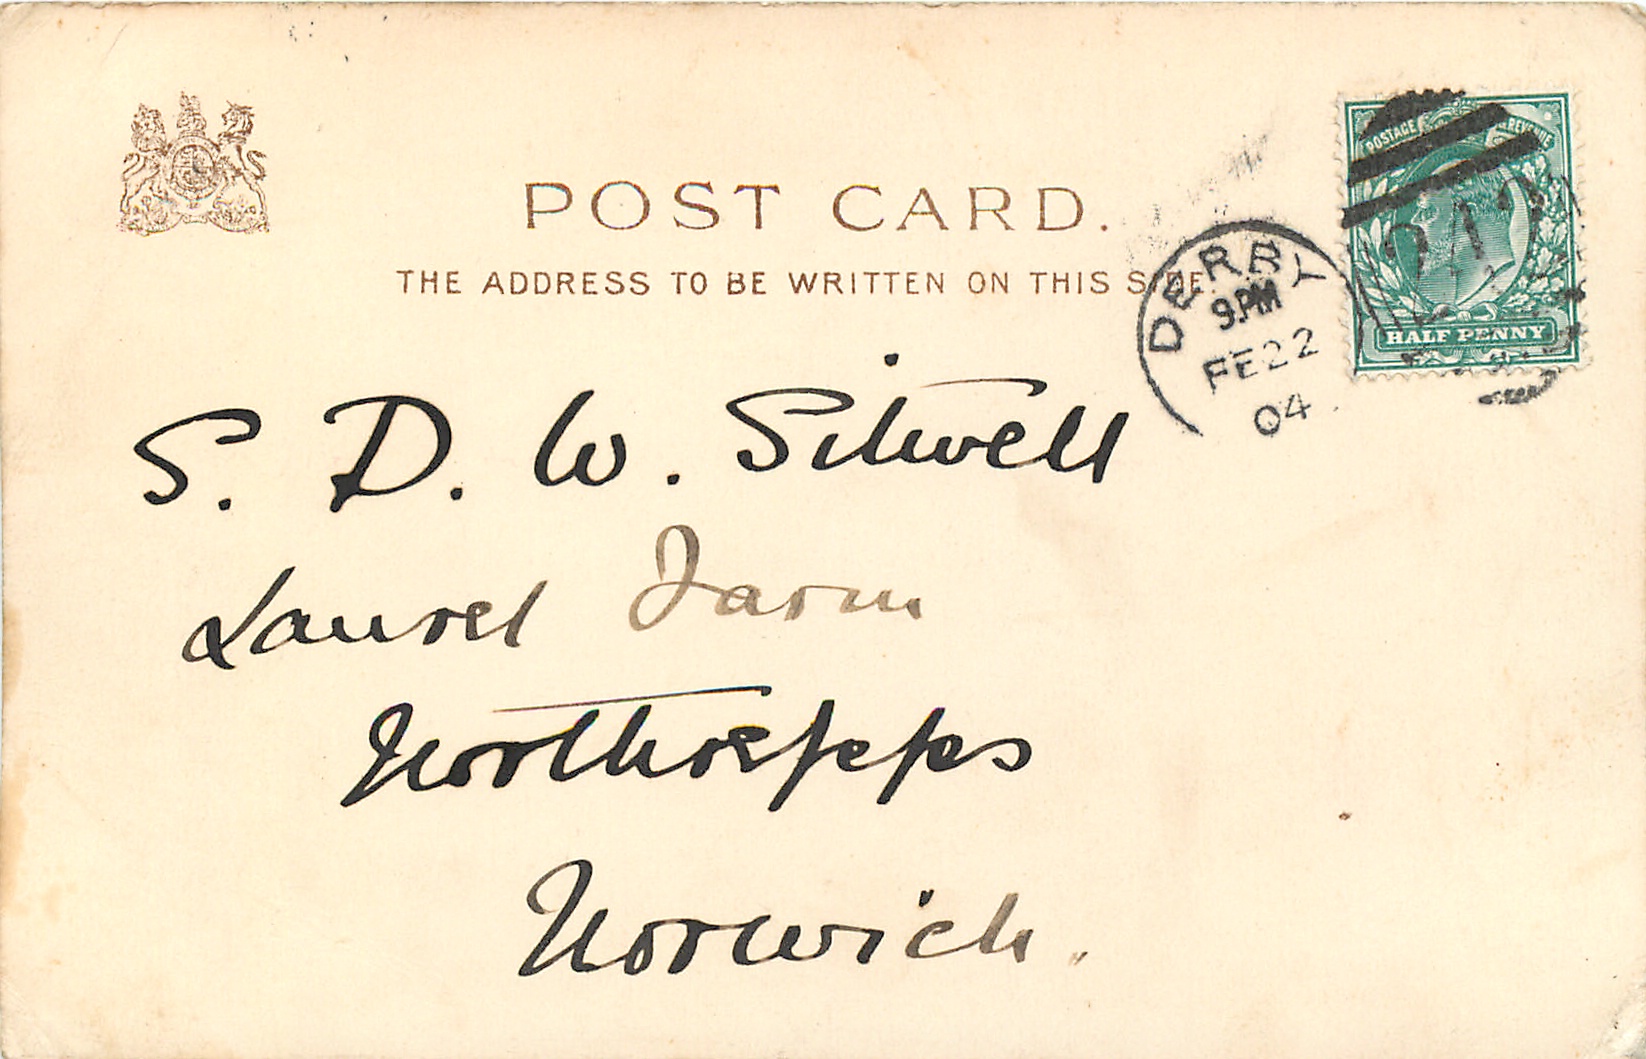 POST CARD.
THE ADDRESS TO BE WRITTEN ON THIS SIDE.
POSTAGE & REVENUE
HALF PENNY
DERBY
9.PM
FE 22
04
S. D. W. Sitwell
Laurel Farm
Northrepps
Norwich.